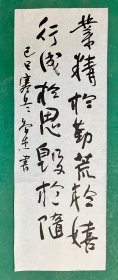 業精於勤荒於嬉
行成於思毀於隨
己丑
書